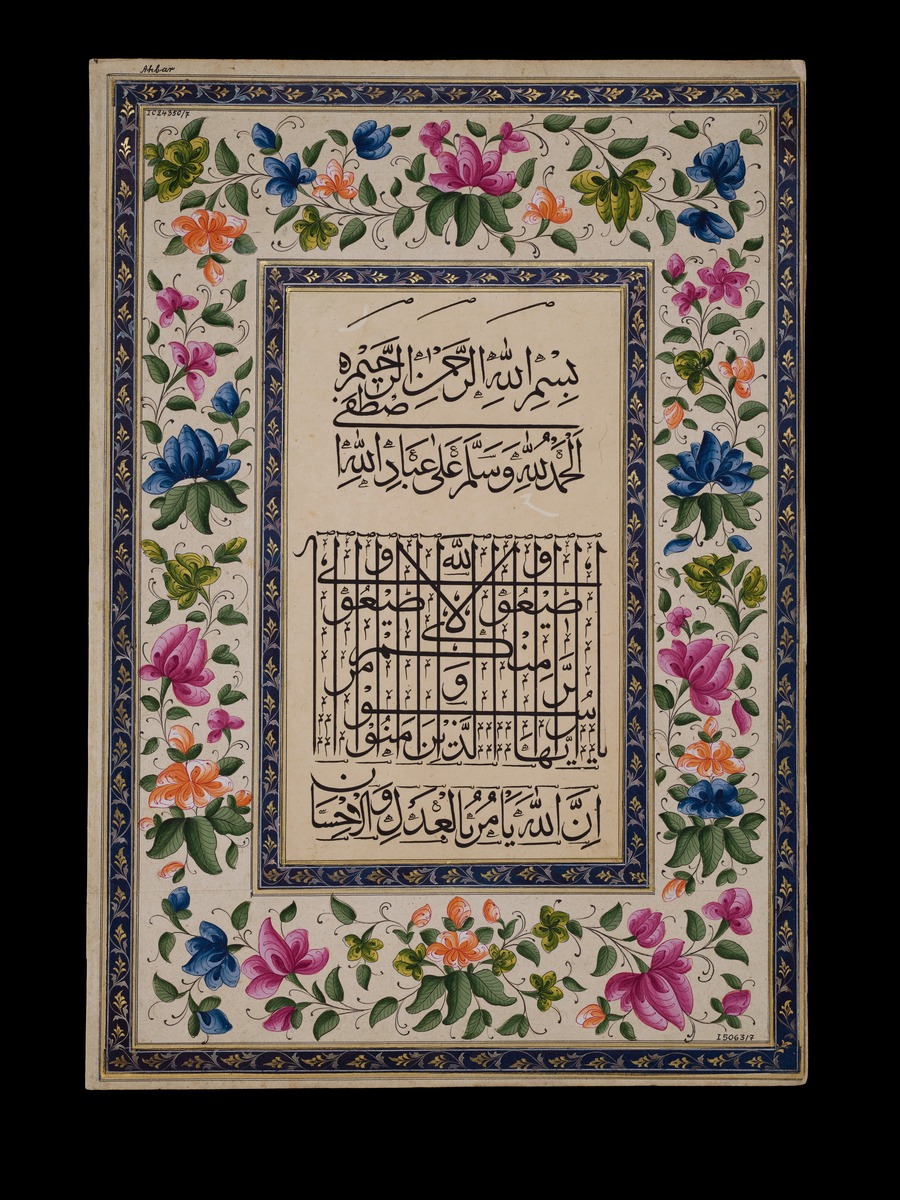 Akbar
IC24350/7
بِسْمِ اللهِ الرَّحْمٰنِ الرَّحِيْمِ ه
اَلْحَمْدُ لِلّٰهِ وَسَلَّمَ عَلٰى عِبَادِ اللهِ اصْطَفٰى
يا ايها الذين امنوا اطيعوا الله و اطيعوا الرسول و اولى الامر منكم
اِنَّ اللهَ يَاْمُرُ بِالْعَدْلِ وَالْاِحْسَانِ
I 5063/7